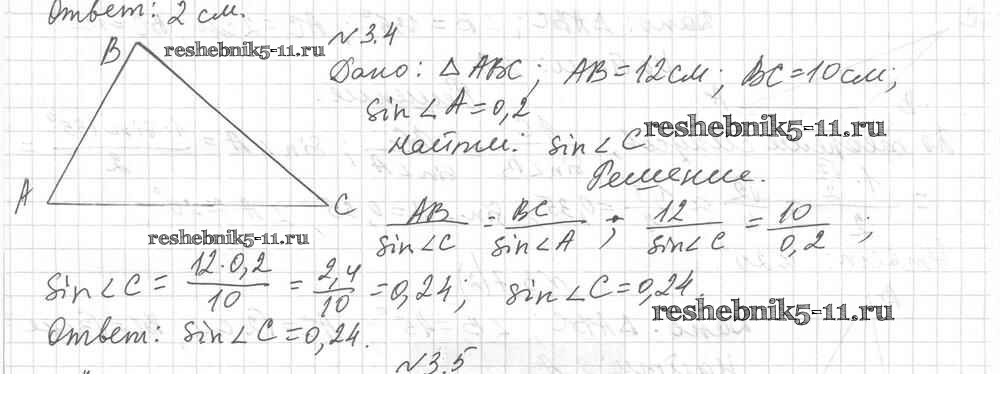 Ответ: 2 см.
B reshebnik5-11.ru №3.4
Дано: △ABC; AB=12см; BC=10см;
sin∠A=0,2
reshebnik5-11.ru
Найти: sin∠C
Решение.
A C AB/sin∠C = BC/sin∠A; 12/sin∠C = 10/0,2;
reshebnik5-11.ru
sin∠C = 12·0,2/10 = 2,4/10 = 0,24; sin∠C=0,24.
reshebnik5-11.ru
Ответ: sin∠C=0,24.
№3.5